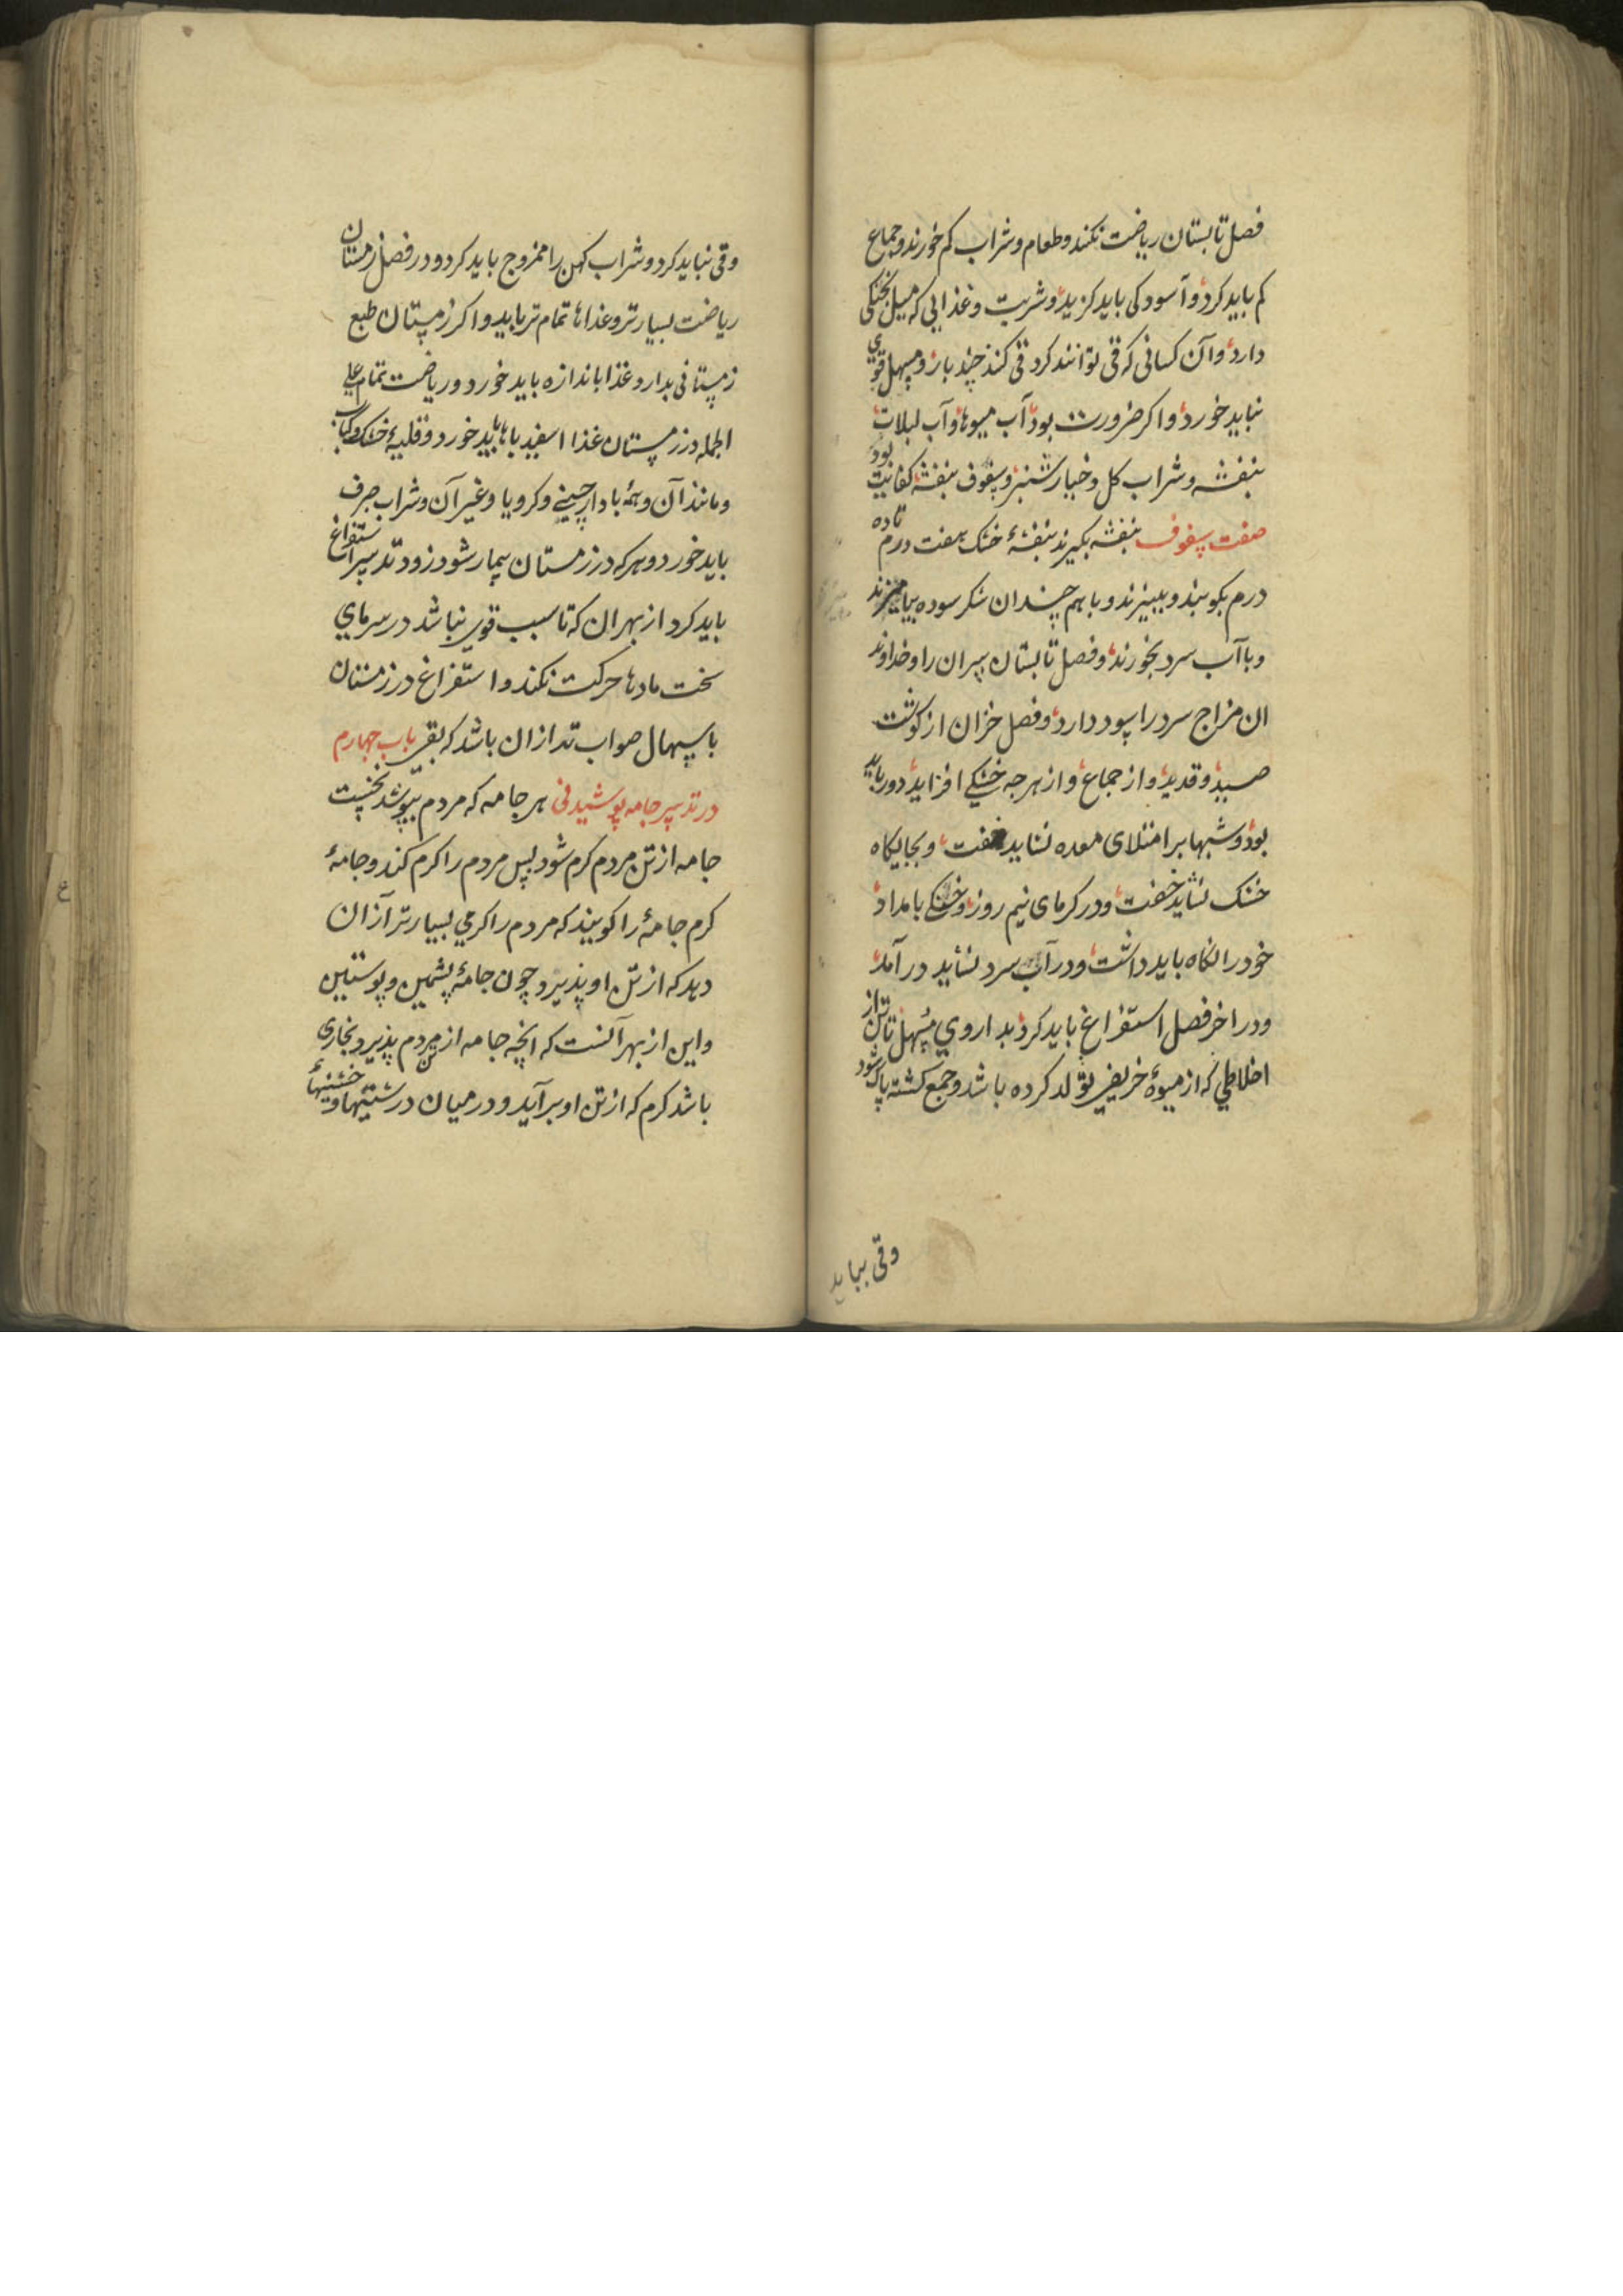 فصل تابستان ریاضت نکند و طعام و شراب کم خورند و جماع
کم باید کرد و آسودکی باید کزید و شربت و غذایی که میل بخنکی
دارد و آن کسانی که قی توانند کرد قی کنند چند بار و مسهل قوی
نباید خورد و اکر ضرورت بود آب میوها و آب لبلاب
بنفشه و شراب کل و خیارشنبر و سفوف بنفشه کفایت بود
صفت سفوف بنفشه بکیرند بنفشهٔ خشک هفت درم تا ده
درم بکوبند و ببیزند و با هم چندان شکر سوده بیامیزند
و با آب سرد بخورند و فصل تابستان پیران را و خداوند
ان مزاج سرد را سود دارد و فصل خزان از کوشت
صید و قدید و از جماع و از هرجه خشکی افزاید دور باید
بود و شبها بر امتلای معده نشاید خفت و بجایکاه
خنک نشاید خفت و در کرمای نیم روز و خنکی بامداد
خود را نکاه باید داشت و در آب سرد نشاید درآمد
و در اخر فصل استفراغ باید کرد بداروی مسهل تا تن از
اخلاطی که از میوهٔ خریفی تولد کرده باشد و جمع کشته پاک شود
وقی نباید
وقی نباید کرد و شراب کهن را ممزوج باید کرد و در فصل زمستان
ریاضت بسیارتر و غذاها تمام تر باید و اکر زمستان طبع
زمستانی بدارد غذا باندازه باید خورد و ریاضت تمام علی
الجمله در زمستان غذا اسفیدباها باید خورد و قلیهٔ خشک و کباب
و مانند آن و همه با دارچینی و کرویا و غیر آن و شراب صرف
باید خورد و هر که در زمستان بیمار شود زود تدبیر استفراغ
باید کرد از بهر ان که تا سبب قوی نباشد در سرمای
سخت مادها حرکت نکند و استفراغ در زمستان
باسهال صواب تر ازان باشد که بقی باب جهارم
در تدبیر جامه پوشیدنی هر جامه که مردم بپوشد نخست
جامه از تن مردم کرم شود پس مردم را کرم کند و جامهٔ
کرم جامهٔ را کویند که مردم را کرمی بسیارتر از ان
دهد که از تن او پذیرد چون جامهٔ پشمین و پوستین
و این از بهر آنست که انچه جامه از تن مردم پذیرد بخاری
باشد کرم که از تن او برآید و در میان درشتیها و خشنیهاء